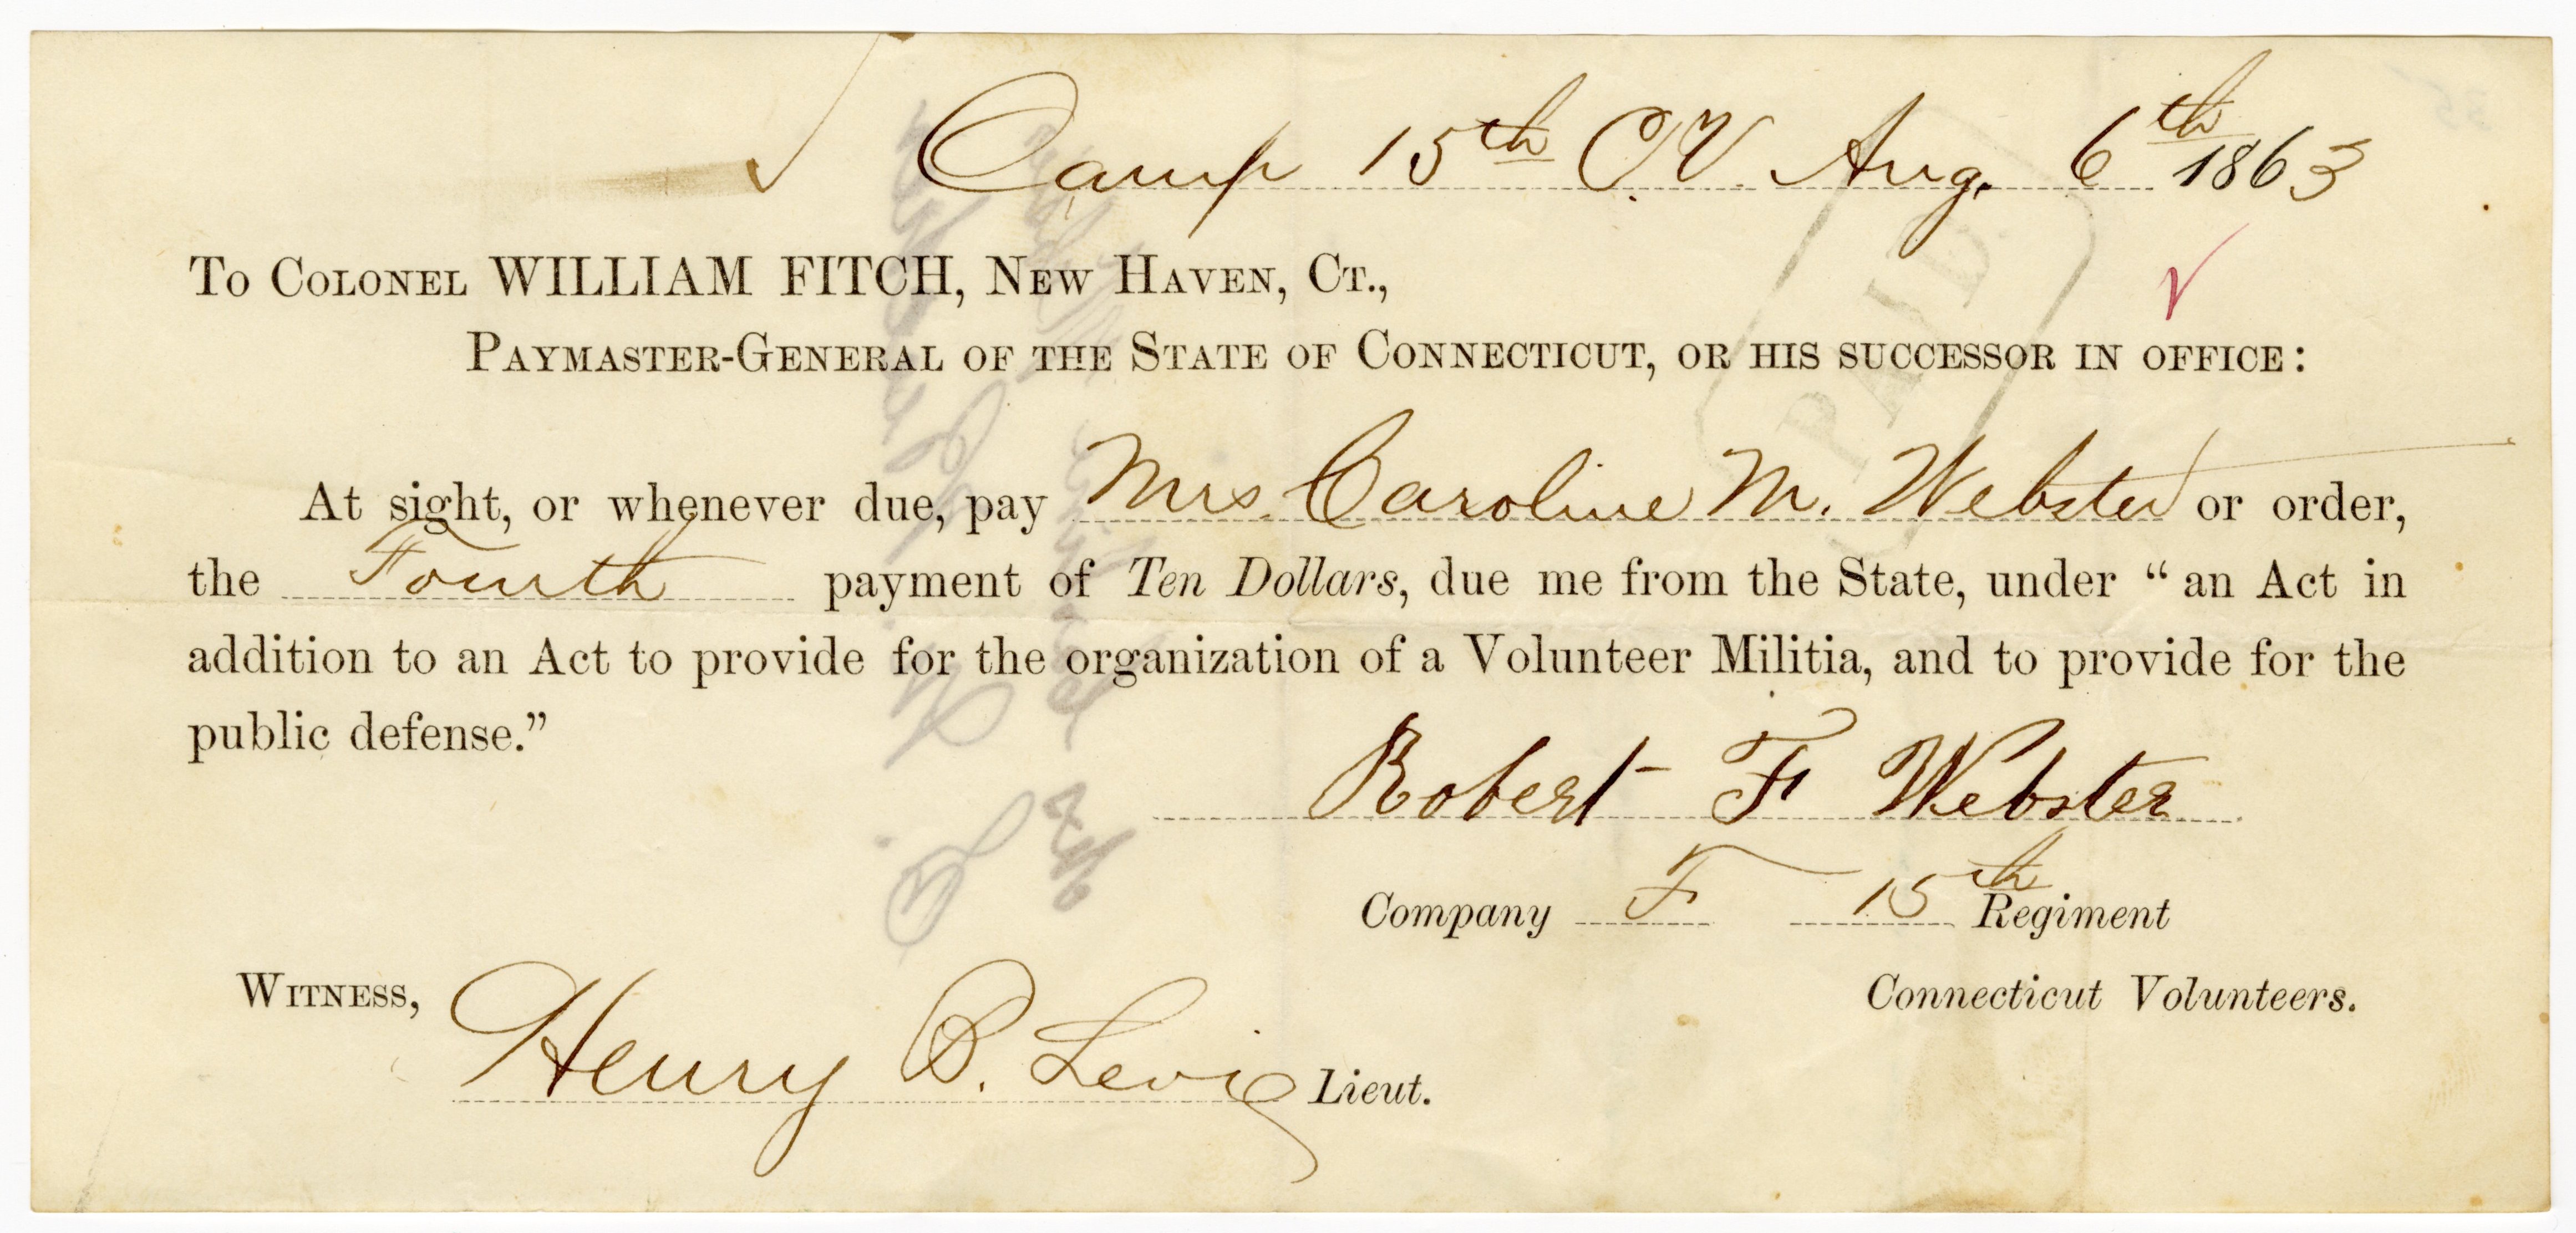 Camp 15th C.V. Aug. 6th 1863
To Colonel WILLIAM FITCH, New Haven, Ct.,
Paymaster-General of the State of Connecticut, or his successor in office:
At sight, or whenever due, pay Mrs. Caroline M. Webster or order,
the Fourth payment of Ten Dollars, due me from the State, under “an Act in
addition to an Act to provide for the organization of a Volunteer Militia, and to provide for the
public defense.”
Robert F Webster
Company F 15th Regiment
Connecticut Volunteers.
Witness,
Henry B. Levi Lieut.
PAID